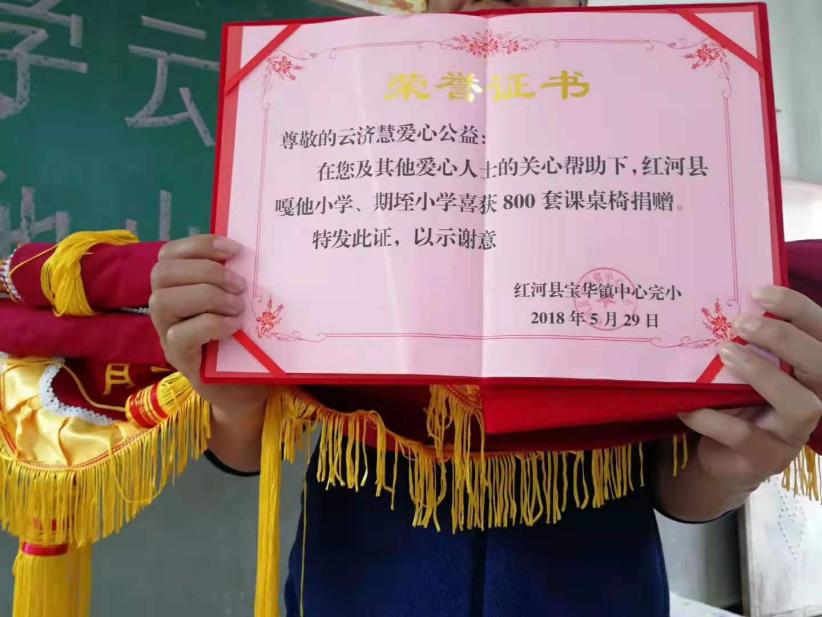 学云
山
荣誉证书
尊敬的云济慧爱心公益：
在您及其他爱心人士的关心帮助下，红河县
嘎他小学、期垤小学喜获 800 套课桌椅捐赠。
特发此证，以示谢意
红河县宝华镇中心完小
2018 年 5 月 29 日